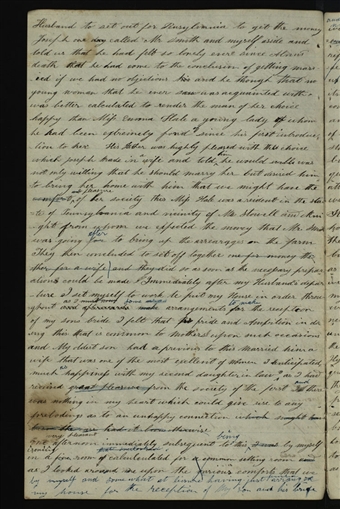 Husband to set out for Pensylvania to get the money
Joseph one day called Mr Smith and myself aside and
told us that he had felt so lonely ever since Alvin's
death that he had come to the conclusion of getting mar
ried if we had no objections and he though that no
young woman that he ever saw was acquainted with
was better calculated to render the man of her choice
happy than Miss Emma Hale a young lady of whom
he had been extremely fond since his first introduc
tion to her His father was highly pleased with this choice
which Joseph made in wife and told he would smith was
not only willing that he should marry her but advised him
to bring her home with him that we might have the
of her society this Miss Hale was a resident in the sta
te of Pennsylvania and vicinity of Mr Stowell and
from whom we expected the money that Mr Smith
was going to bring up the arrearages on the farm
They then concluded to set off together one for money the
other for a wife and they did so as soon as the necessary prepar
ations could be made Immediately after my Husband's depar
ture I set myself to work to put my House in order
for the reception
of my son's bride I felt that pride and Ambition in do
ing this that is common to Mothers upon such occasions
and My oldest son had previous to this married him a
wife that was one of the most excellent of women I anticipated
much happiness with my second daughter in law as I had
received great pleasure from the society of the first and there
was nothing in my heart which could give rise to any
forebodings as to an unhappy connection
One afternoon immediately subsequent to this being by myself
in a room calculated for a common sitting room
as I looked around me upon the various comforts that
by myself and somewhat at leisure having just arranged
my house for the reception of my son and his bride